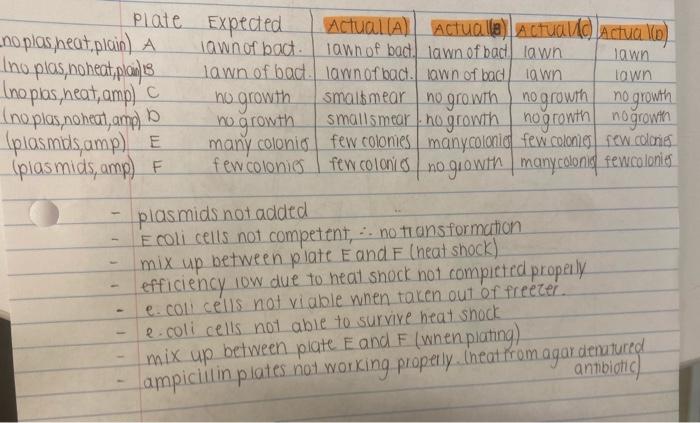 Plate Expected Actual (A) Actual (B) Actual (C) Actual (D)
(no plas, heat, plain) A lawn of bact. lawn of bact lawn of bact lawn lawn
(no plas, no heat, plain) B lawn of bact. lawn of bact. lawn of bact lawn lawn
(no plas, heat, amp) C no growth small smear no growth no growth no growth
(no plas, no heat, amp) D no growth small smear no growth no growth no growth
(plasmids, amp) E many colonies few colonies many colonies few colonies few colonies
(plasmids, amp) F few colonies few colonies no growth many colonies few colonies
- plasmids not added
- E coli cells not competent, ∴ no transformation
- mix up between plate E and F (heat shock)
- efficiency low due to heat shock not completed properly
- e. coli cells not viable when taken out of freezer.
- e. coli cells not able to survive heat shock
- mix up between plate E and F (when plating)
- ampicillin plates not working properly. (heat from agar denatured
antibiotic)